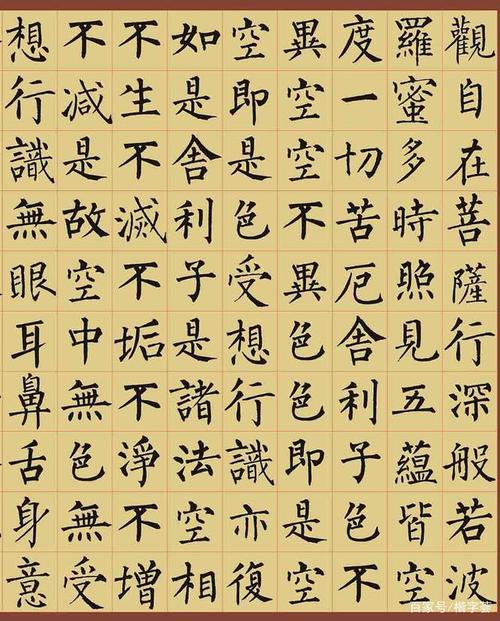 觀自在菩薩行深般若波
羅蜜多時照見五蘊皆空
度一切苦厄舍利子色不
異空空不異色色即是空
空即是色受想行識亦復
如是舍利子是諸法空相
不生不滅不垢不淨不增
不减是故空中無色無受
想行識無眼耳鼻舌身意
百家号/楷字荟